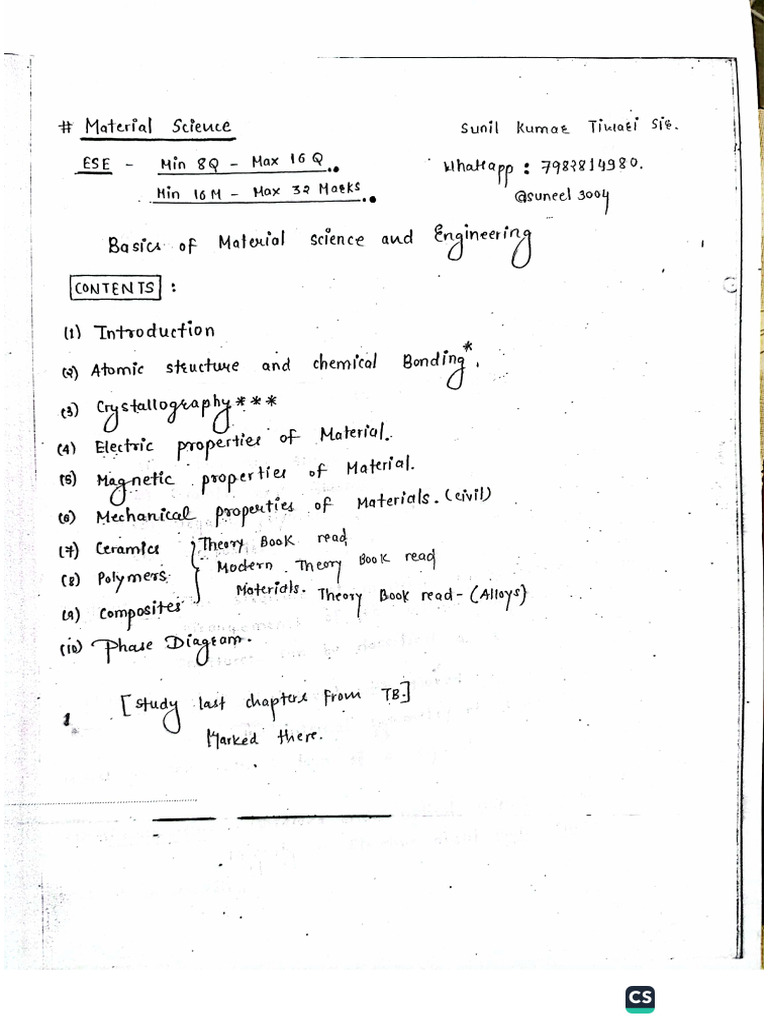 # Material Science
Sunil Kumar Tiwari Sir.
ESE - Min 8Q - Max 16 Q
Whatsapp : 7982814980.
Min 16 M - Max 32 Marks
@suneel3004
Basics of Material science and Engineering
CONTENTS :
(1) Introduction
(2) Atomic structure and chemical Bonding*.
(3) Crystallography***
(4) Electric properties of Material.
(5) Magnetic properties of Material.
(6) Mechanical properties of Materials. (civil)
(7) Ceramics } Theory Book read
(8) Polymers. Modern Theory Book read
(9) Composites Materials. Theory Book read - (Alloys)
(10) Phase Diagram.
[study last chapters from TB.]
1
Marked there.
CS